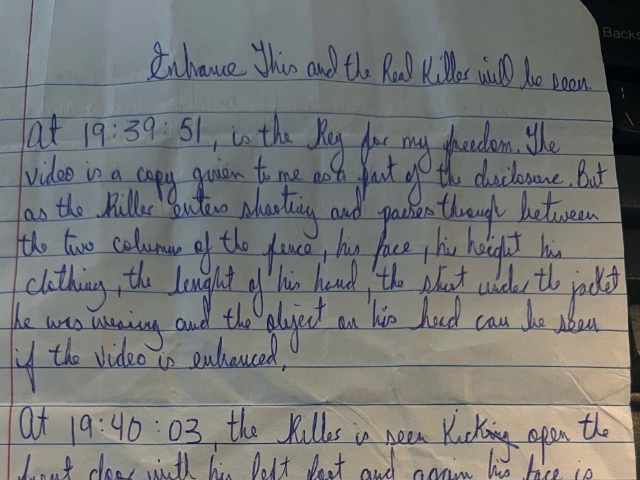 Backs
Enhance This and the Real Killer will be seen.
At 19:39:51, is the Key for my freedom. The
video is a copy given to me as a part of the disclosure. But
as the Killer enters shooting and passes through between
the two columns of the fence, his face, his height his
clothing, the lenght of his hand, the shirt under the jacket
he was wearing and the object on his head can be seen
if the video is enhanced.
At 19:40:03, the Killer is seen Kicking open the
front door with his left foot and again his face is